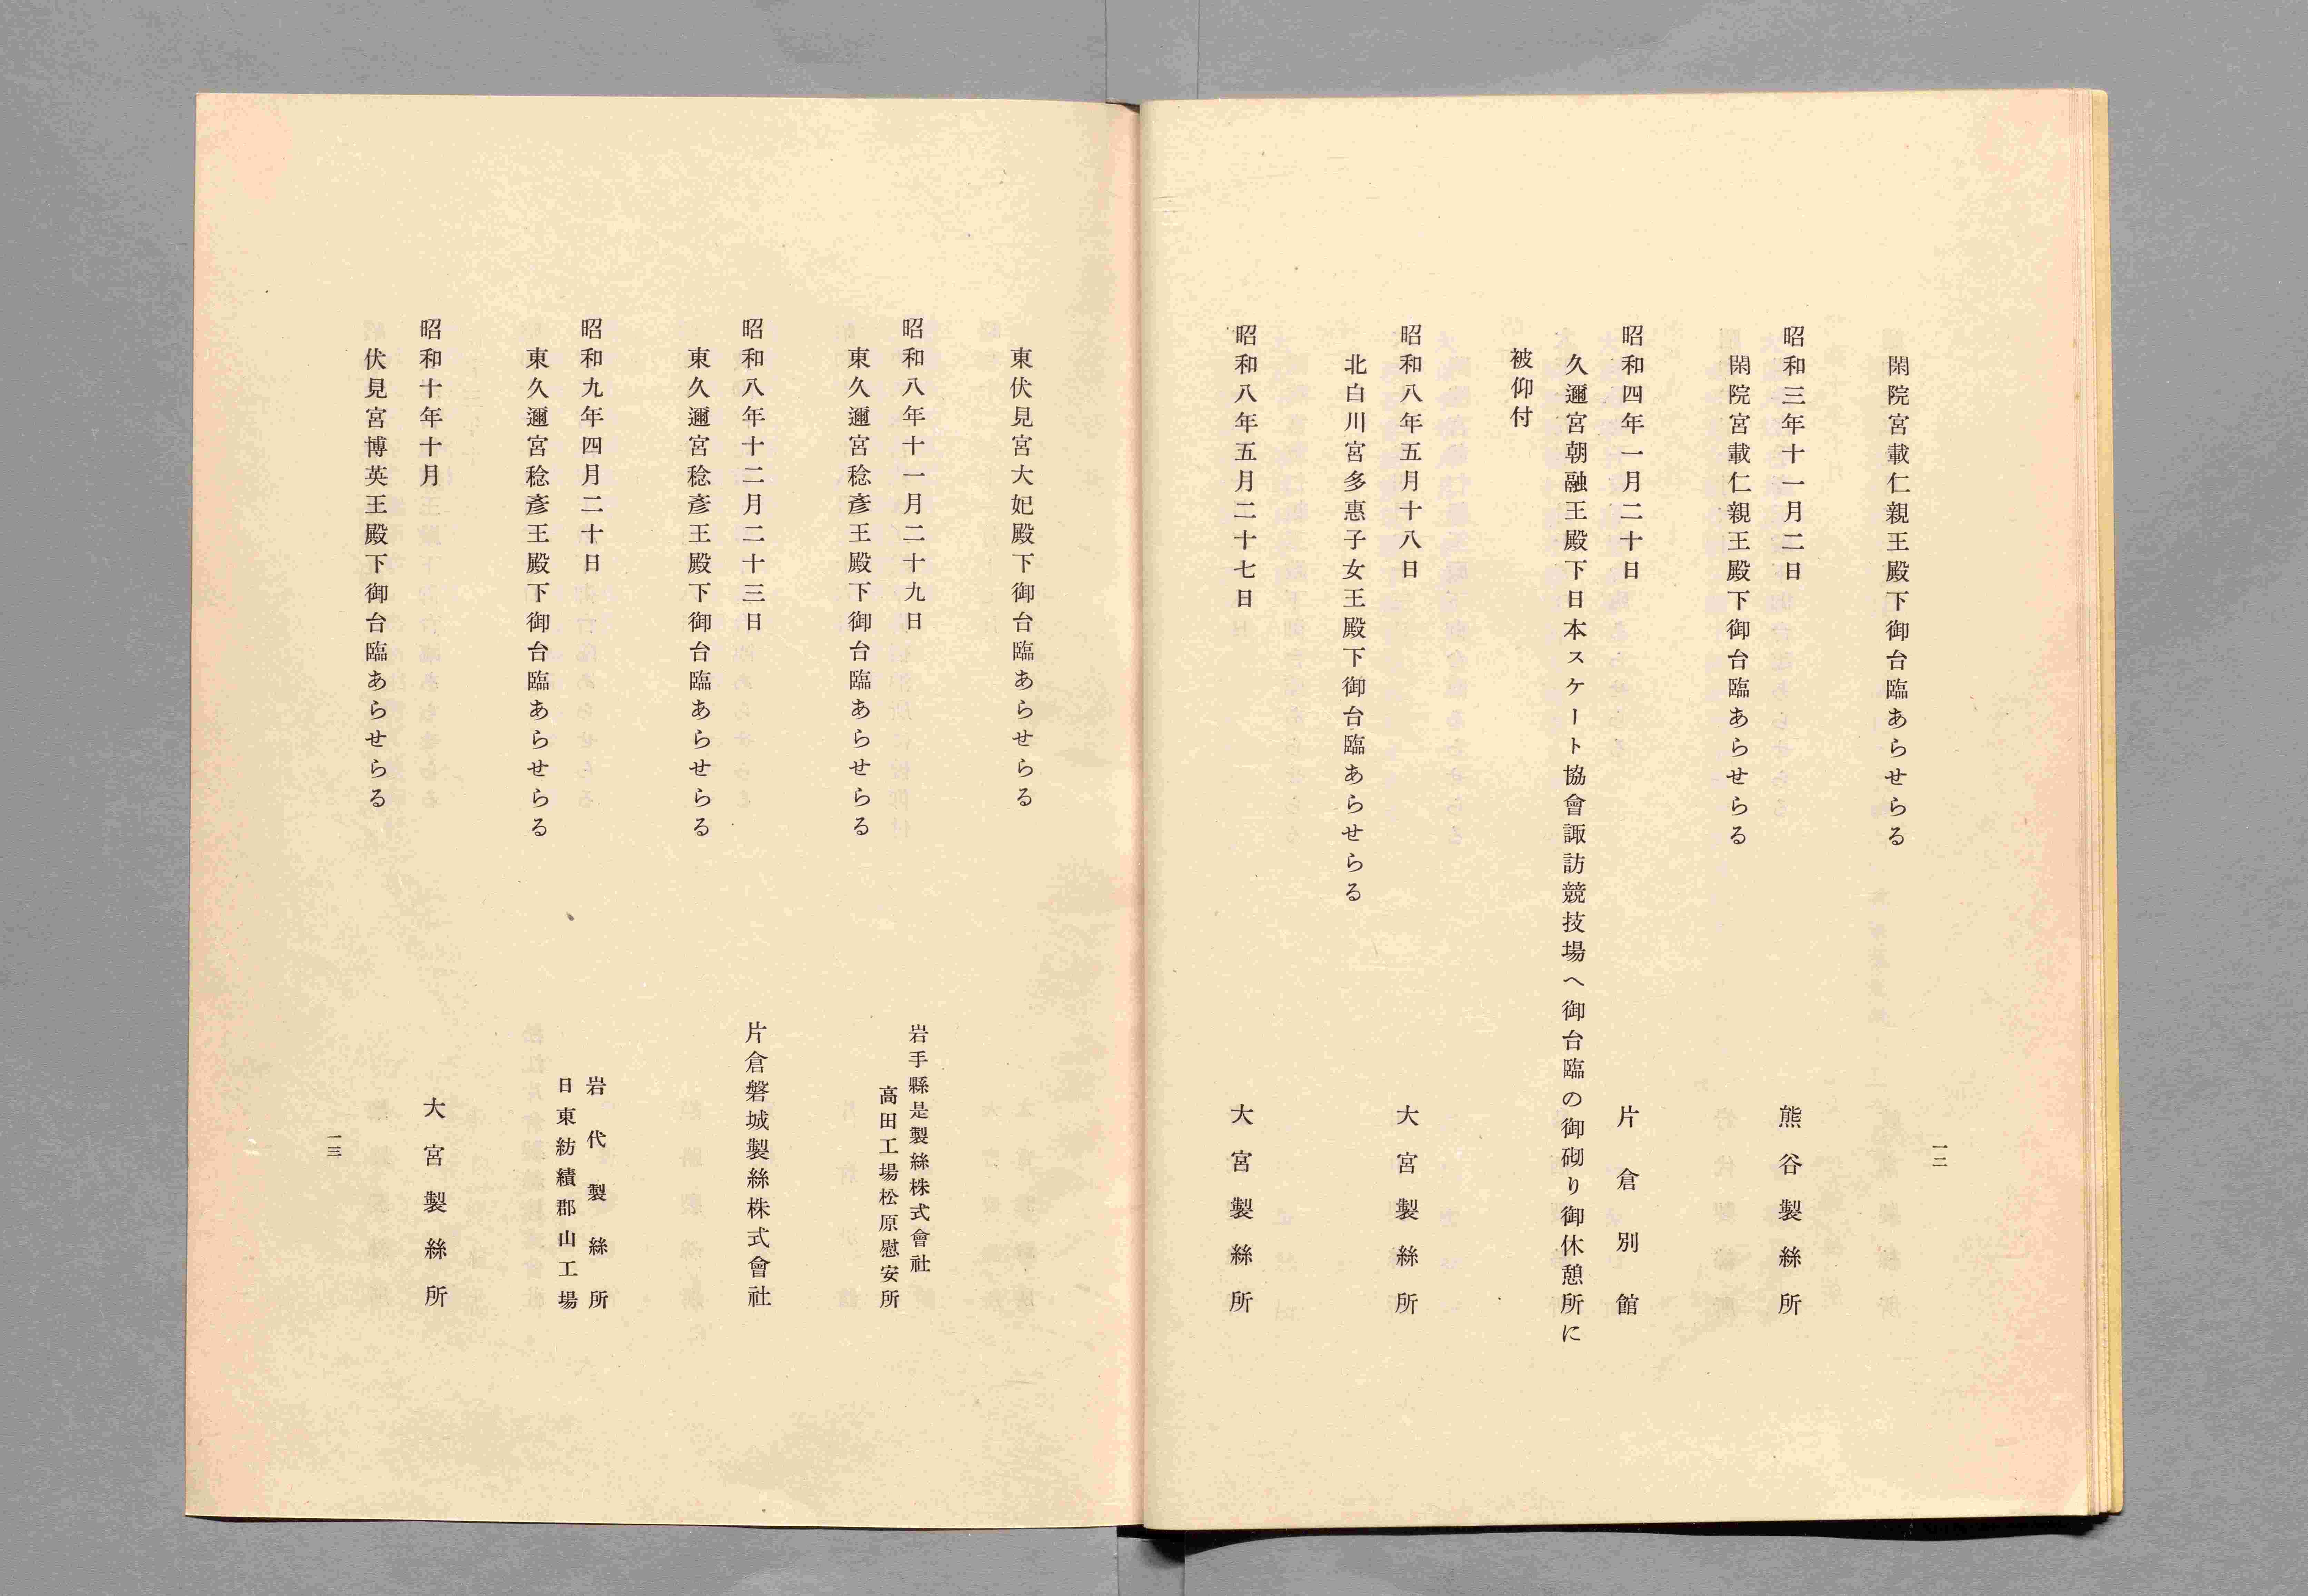 閑院宮載仁親王殿下御台臨あらせらる
昭和三年十一月二日
熊谷製絲所
閑院宮載仁親王殿下御台臨あらせらる
昭和四年一月二十日
片倉別館
久邇宮朝融王殿下日本スケート協會諏訪競技場へ御台臨の御砌り御休憩所に
被仰付
昭和八年五月十八日
大宮製絲所
北白川宮多惠子女王殿下御台臨あらせらる
昭和八年五月二十七日
大宮製絲所
一二
東伏見宮大妃殿下御台臨あらせらる
昭和八年十一月二十九日
岩手縣是製絲株式會社
高田工場松原慰安所
東久邇宮稔彥王殿下御台臨あらせらる
昭和八年十二月二十三日
片倉磐城製絲株式會社
東久邇宮稔彥王殿下御台臨あらせらる
昭和九年四月二十日
岩代製絲所
日東紡績郡山工場
東久邇宮稔彥王殿下御台臨あらせらる
昭和十年十月
大宮製絲所
伏見宮博英王殿下御台臨あらせらる
一三